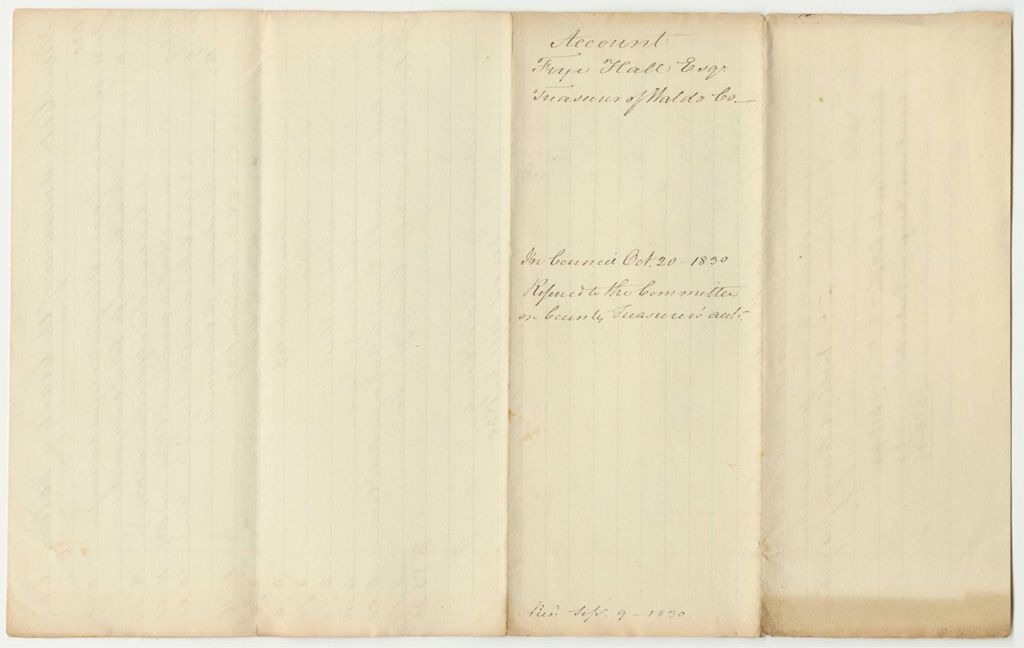 Account
Frye Hall Esqr
Treasurer of Waldo Co—
In Council Oct. 20 - 1830
Referred to the Committee
on County Treasurer's accts.
Recd Sept. 9 - 1830